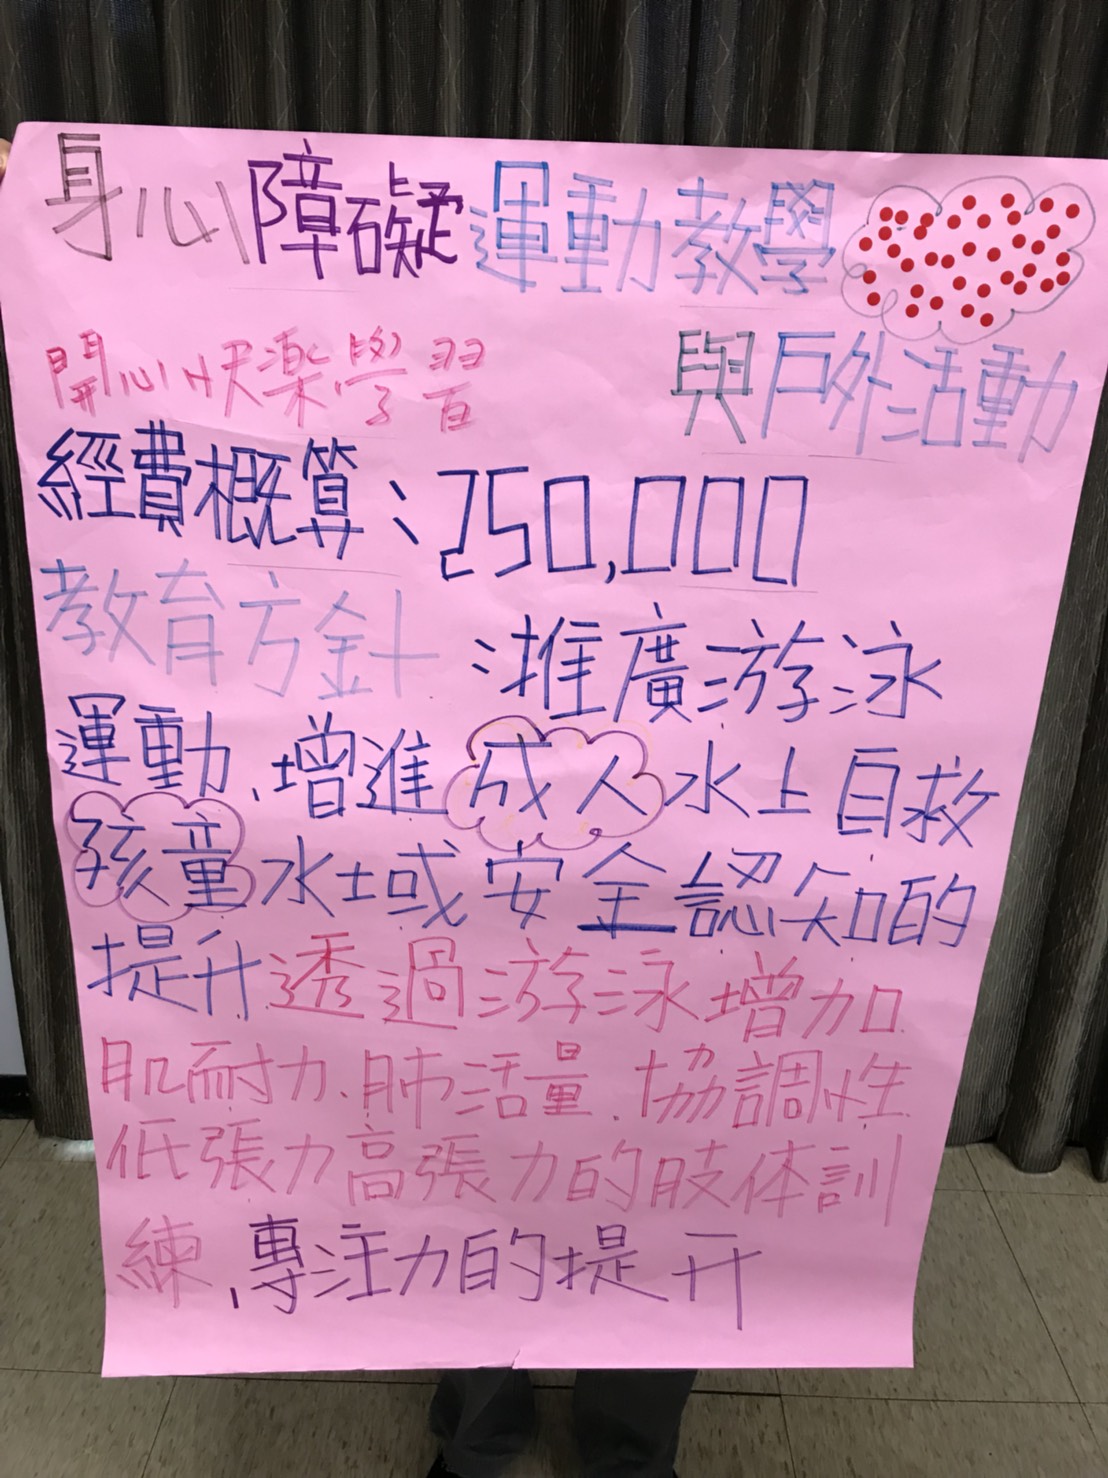 身心障礙運動教學
與戶外活動
開心快樂學習
經費概算:250,000
教育方針:推廣游泳
運動、增進成人水上自救
孩童水域安全認知的
提升透過游泳增加
肌耐力、肺活量、協調性
低張力高張力的肢体訓
練、專注力的提升